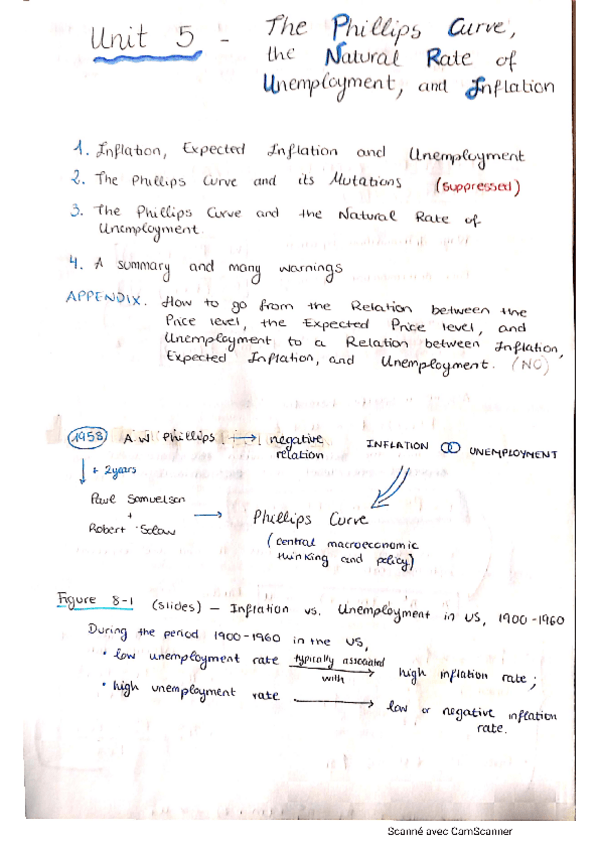 Unit 5 - The Phillips Curve,
the Natural Rate of
Unemployment, and Inflation
1. Inflation, Expected Inflation and Unemployment
2. The Phillips Curve and its Mutations (suppressed)
3. The Phillips Curve and the Natural Rate of
Unemployment.
4. A summary and many warnings
APPENDIX. How to go from the Relation between the
Price level, the Expected Price level, and
Unemployment to a Relation between Inflation,
Expected Inflation, and Unemployment. (NO)
1958 A.W Phillips → negative INFLATION UNEMPLOYMENT
relation
↓ + 2 years
Paul Samuelson
+
Robert Solow → Phillips Curve
(central macroeconomic
thinking and policy)
Figure 8-1 (slides) - Inflation vs. Unemployment in US, 1900-1960
During the period 1900-1960 in the US,
• low unemployment rate typically associated with → high inflation rate;
• high unemployment rate → low or negative inflation
rate.
Scanné avec CamScanner